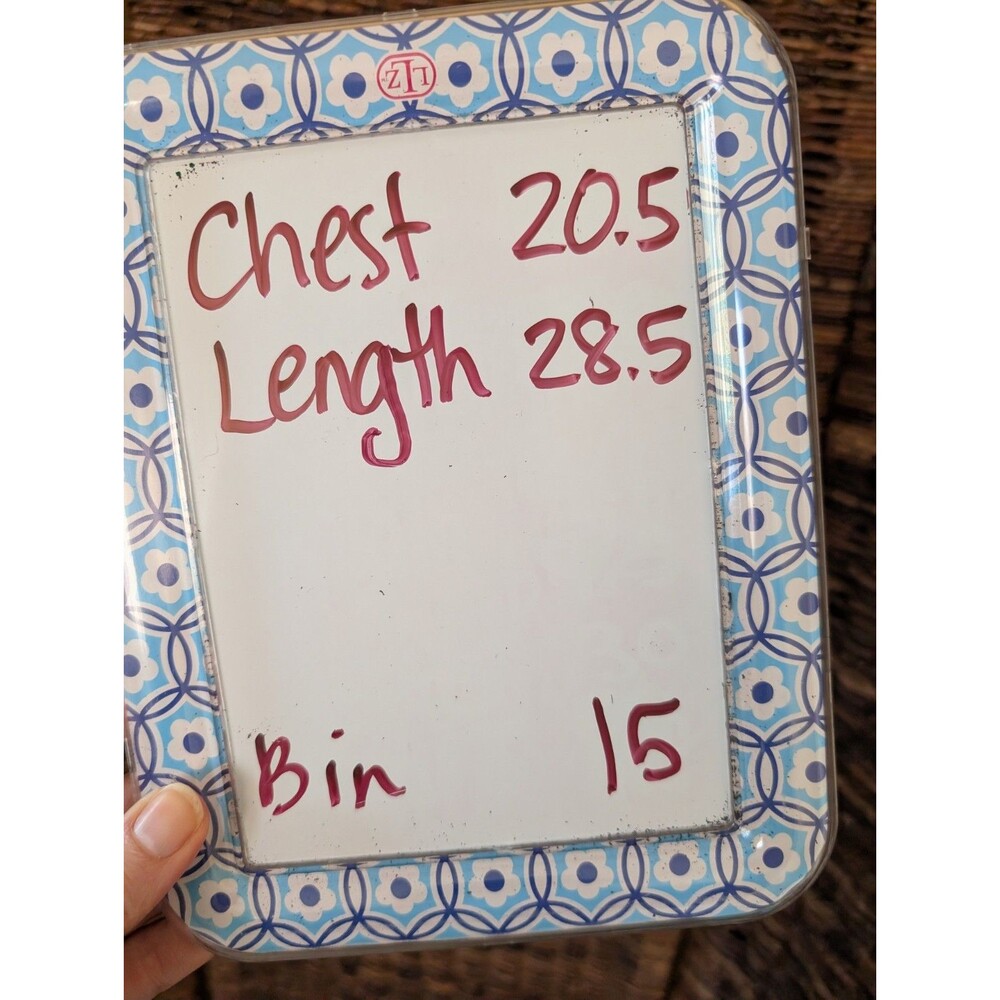 Chest 20.5
Length 28.5
Bin 15